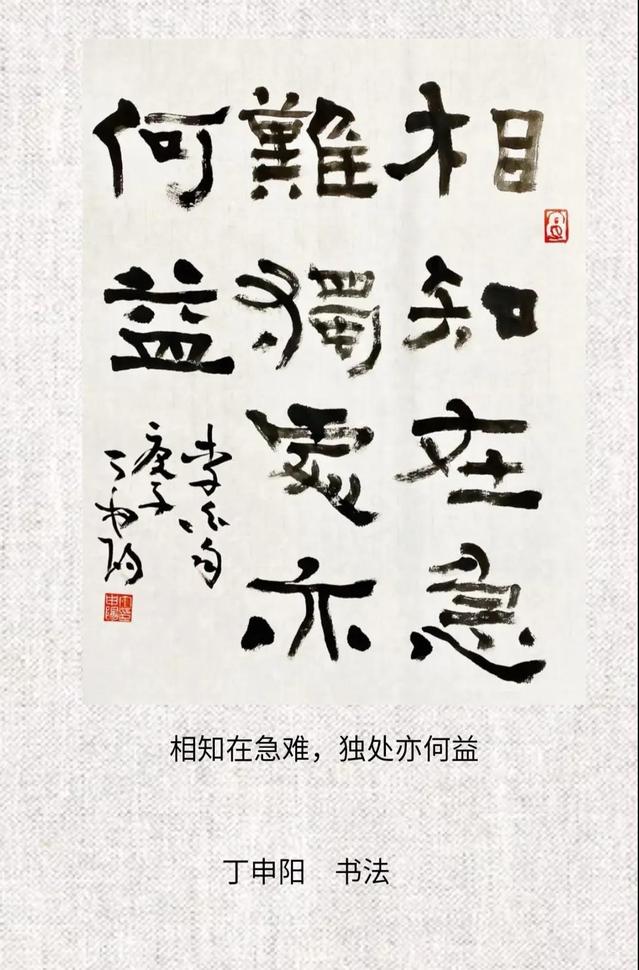 相知在急
難獨處亦
何益
李白句
庚子
丁申阳
相知在急难，独处亦何益
丁申阳 书法